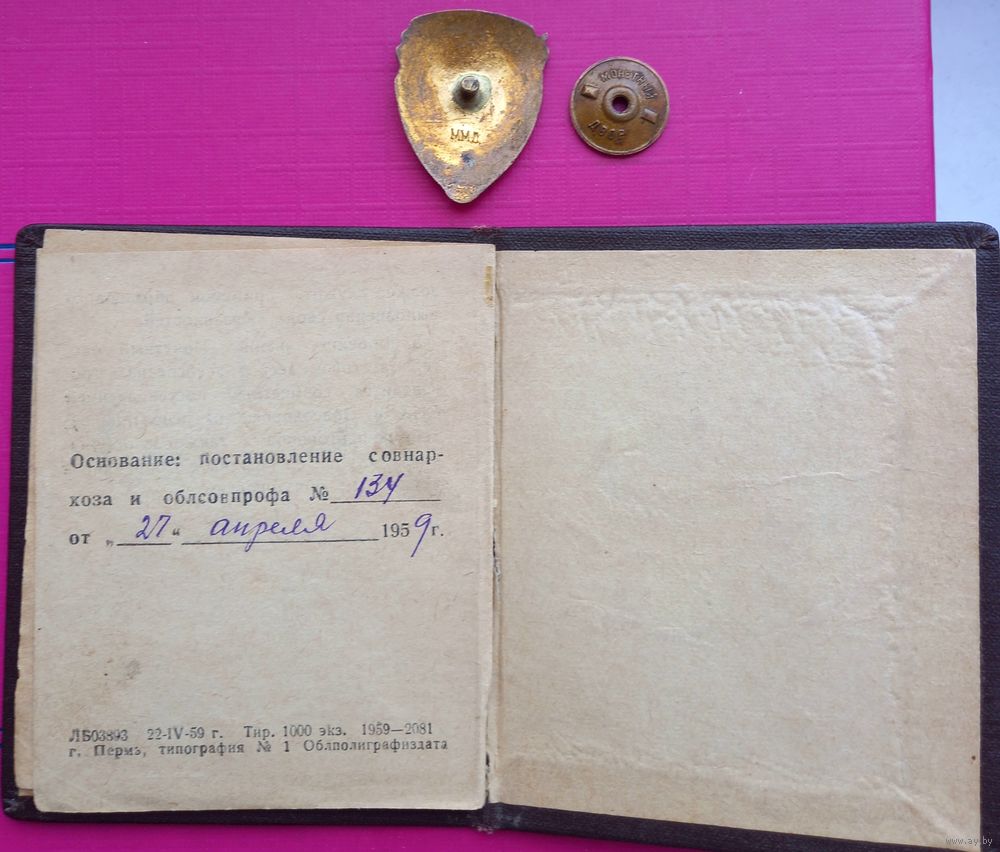 ММД
МОНЕТНЫЙ
ДВОР
Основание: постановление совнар-
хоза и облсовпрофа № 134
от „27“ апреля 1959 г.
ЛБ03893 22-IV-59 г. Тир. 1000 экз. 1959—2081
г. Пермь, типография № 1 Облполиграфиздата
www.ay.by